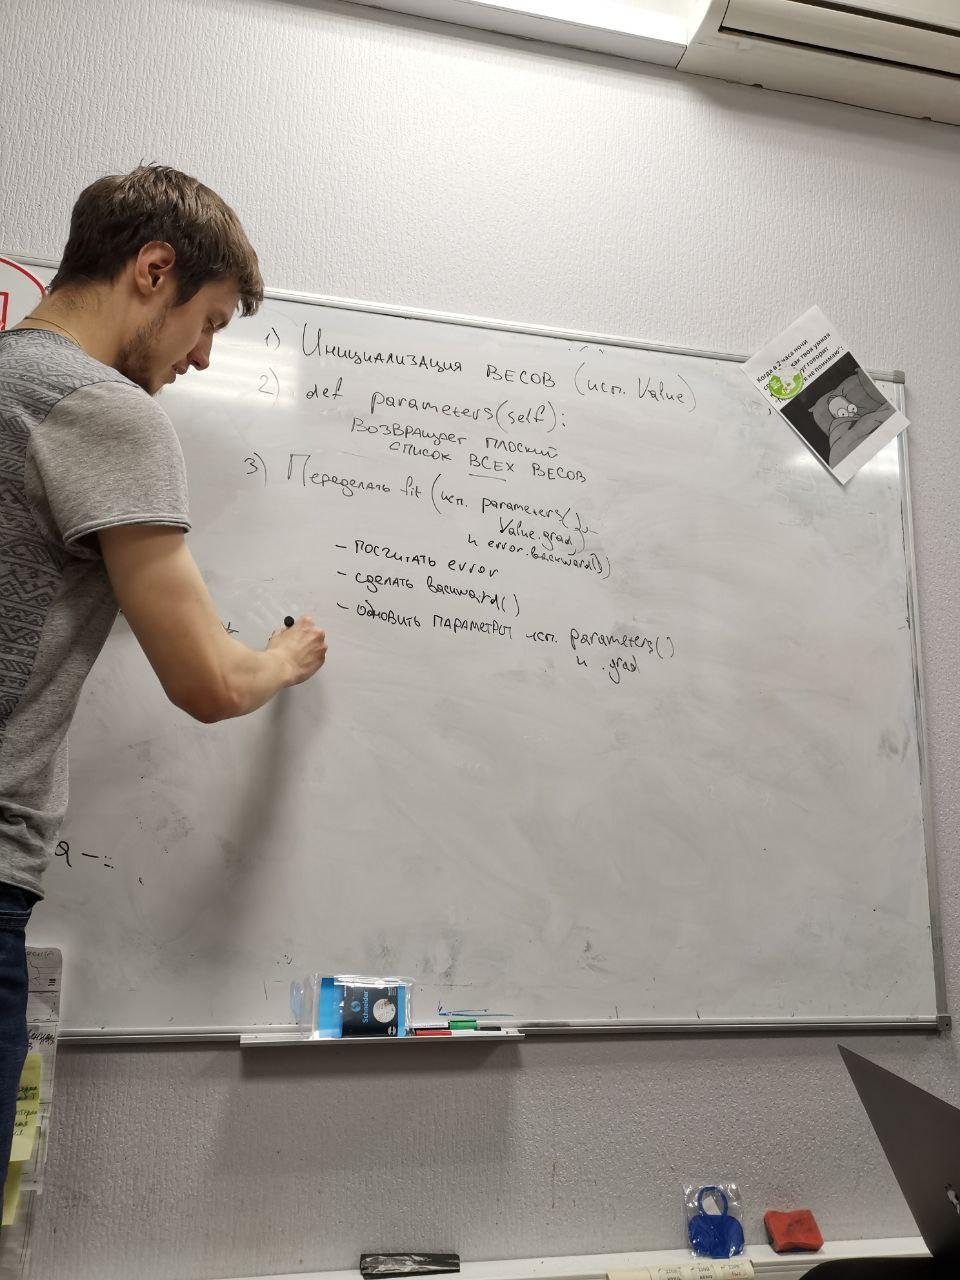 1) Инициализация весов (исп. Value)
2) def parameters(self):
возвращает плоский
список ВСЕХ весов
3) Переделать fit (исп. parameters(),
Value.grad
и error.backward())
- посчитать error
- сделать backward()
- обновить параметры исп. parameters()
и .grad
Когда в 2 часа ночи
как твоя умная
говорит
я не понимаю":
Schneider